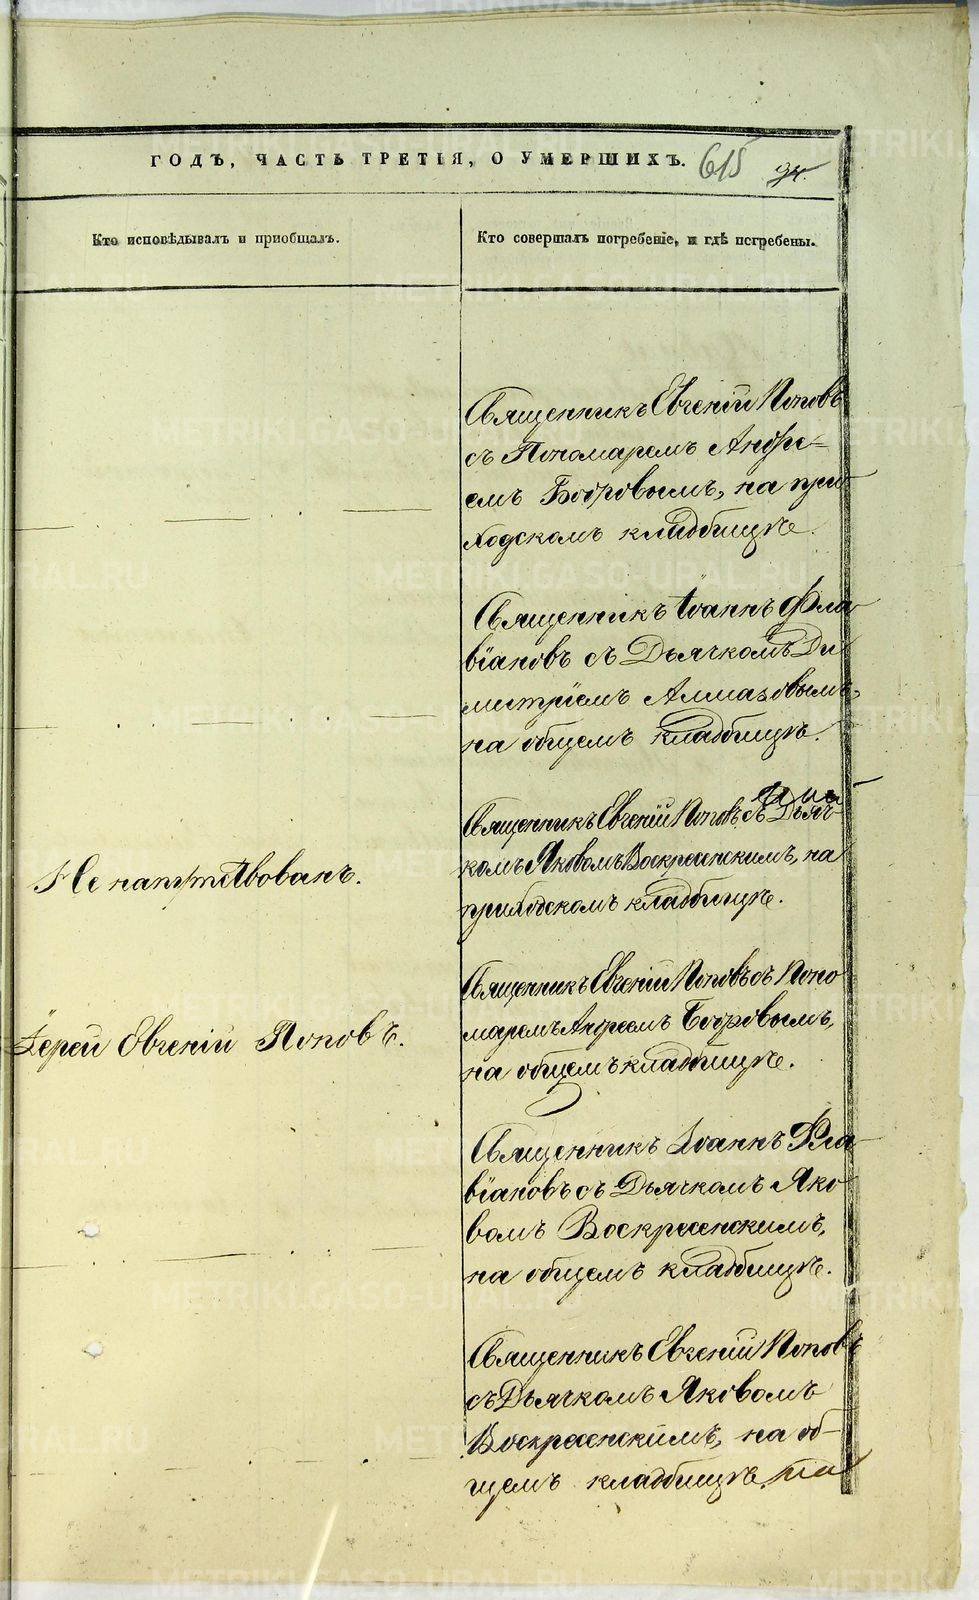 ГОДЪ, ЧАСТЬ ТРЕТІЯ, О УМЕРШИХЪ. 615
Кто исповѣдывалъ и пріобщалъ.
Кто совершалъ погребеніе, и гдѣ погребены.
Священникъ Евгеній Поповъ
съ Пономаремъ Андре-
емъ Бобровымъ, на при
ходскомъ кладбищѣ.
Священникъ Іоаннъ Фла
віановъ съ Дьячкомъ Ди
митріемъ Алмазовымъ,
на общемъ кладбищѣ.
Священникъ Евгеній Поповъ съ Дьяч-
комъ Яковомъ Воскресенскимъ, на
приходскомъ кладбищѣ.
Не напутствованъ.
Священникъ Евгеній Поповъ съ Поно
маремъ Андреемъ Бобровымъ,
на общемъ кладбищѣ.
Іерей Евгеній Поповъ.
Священникъ Іоаннъ Фла
віановъ съ Дьячкомъ Яко
вомъ Воскресенскимъ,
на общемъ кладбищѣ.
Священникъ Евгеній Поповъ
съ Дьячкомъ Яковомъ
Воскресенскимъ, на об-
щемъ кладбищѣ.
METRIKI.GASO-URAL.RU